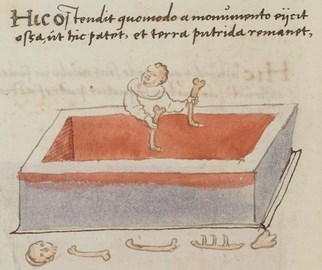 Hic ostendit quomodo a monumento eijcit
ossa, ut hic patet, et terra putrida remanet,